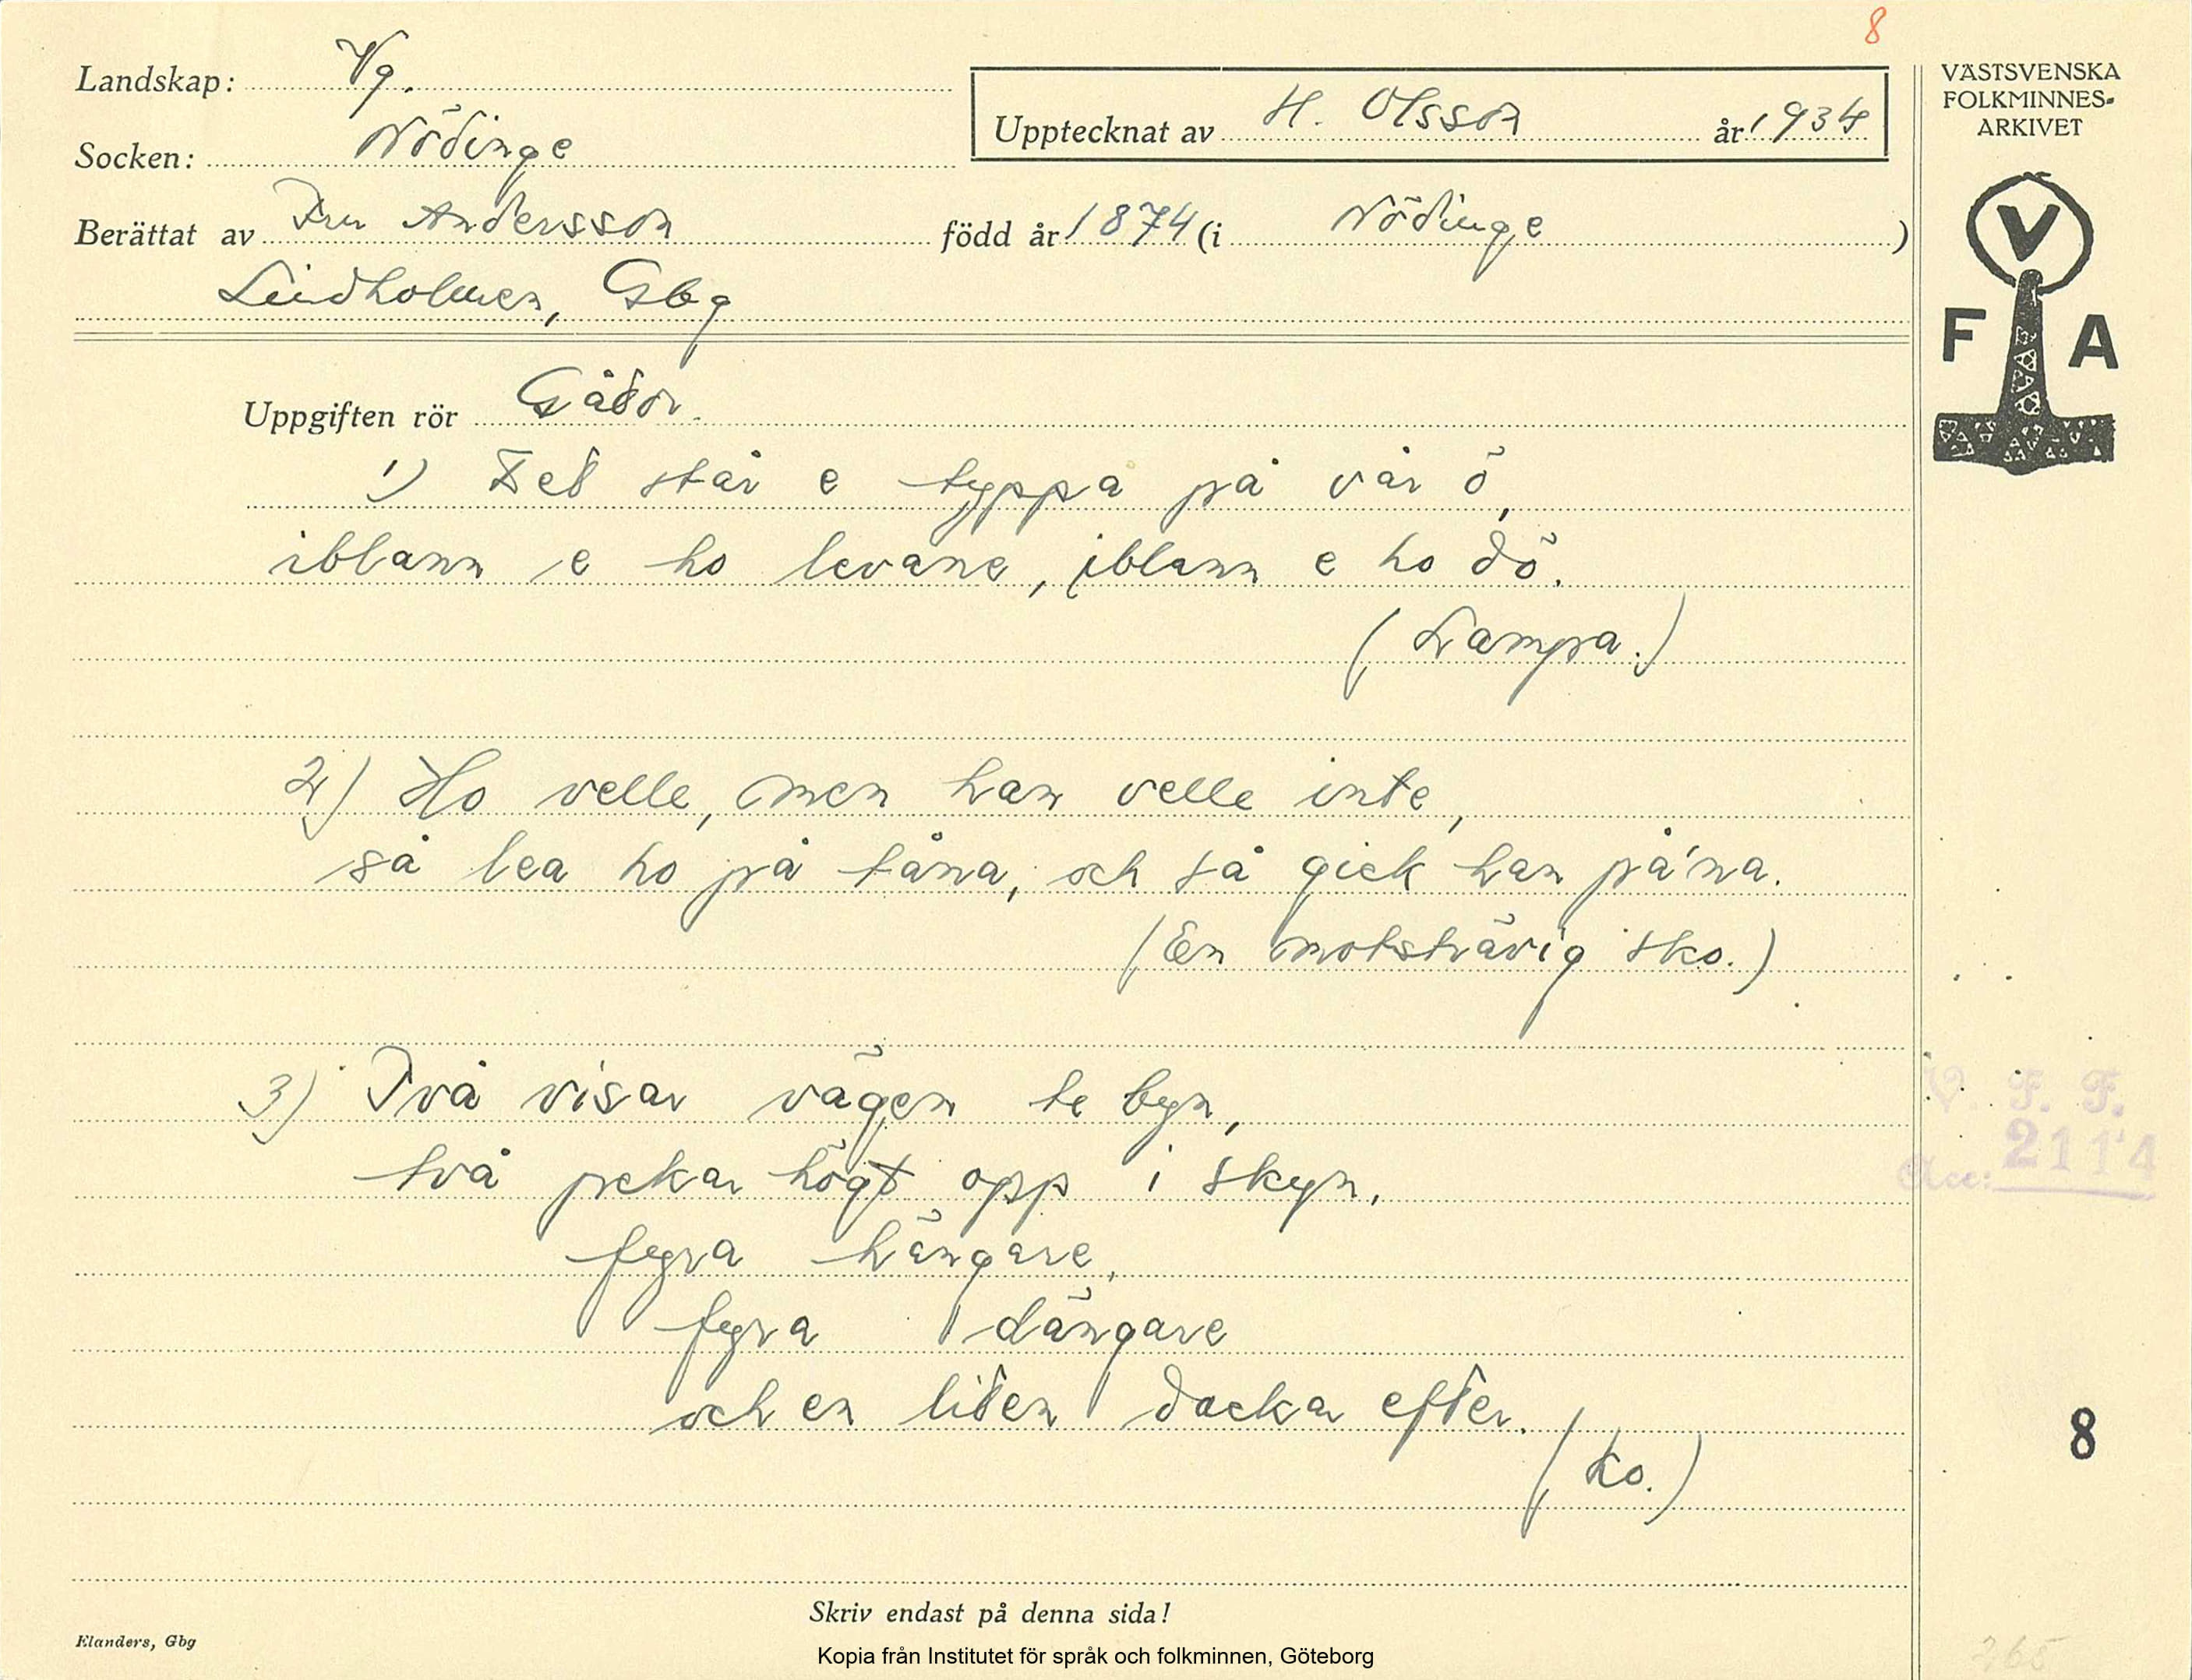 8
Landskap: Vg.
Socken: Nödinge
Upptecknat av H. Olsson år 1934
Berättat av Fru Andersson född år 1874 (i Nödinge)
Lindholmen, Gbg
VÄSTSVENSKA
FOLKMINNES-
ARKIVET
V
F A
Uppgiften rör Gåtor.
1) Det står e typpa på vår ö,
iblann e ho levane, iblann e ho dö.
(Lampa.)
2) Ho velle, men han velle inte,
så lea ho på tåna, och så gick han på'na.
(En motsträvig sko.)
3) Två visar vägen te byn,
två pekar högt opp i skyn,
fyra hängare,
fyra dängare
och en liten dackar efter.
(Ko.)
V. F. F.
Acc: 2114
8
Skriv endast på denna sida!
Elanders, Gbg
Kopia från Institutet för språk och folkminnen, Göteborg
265